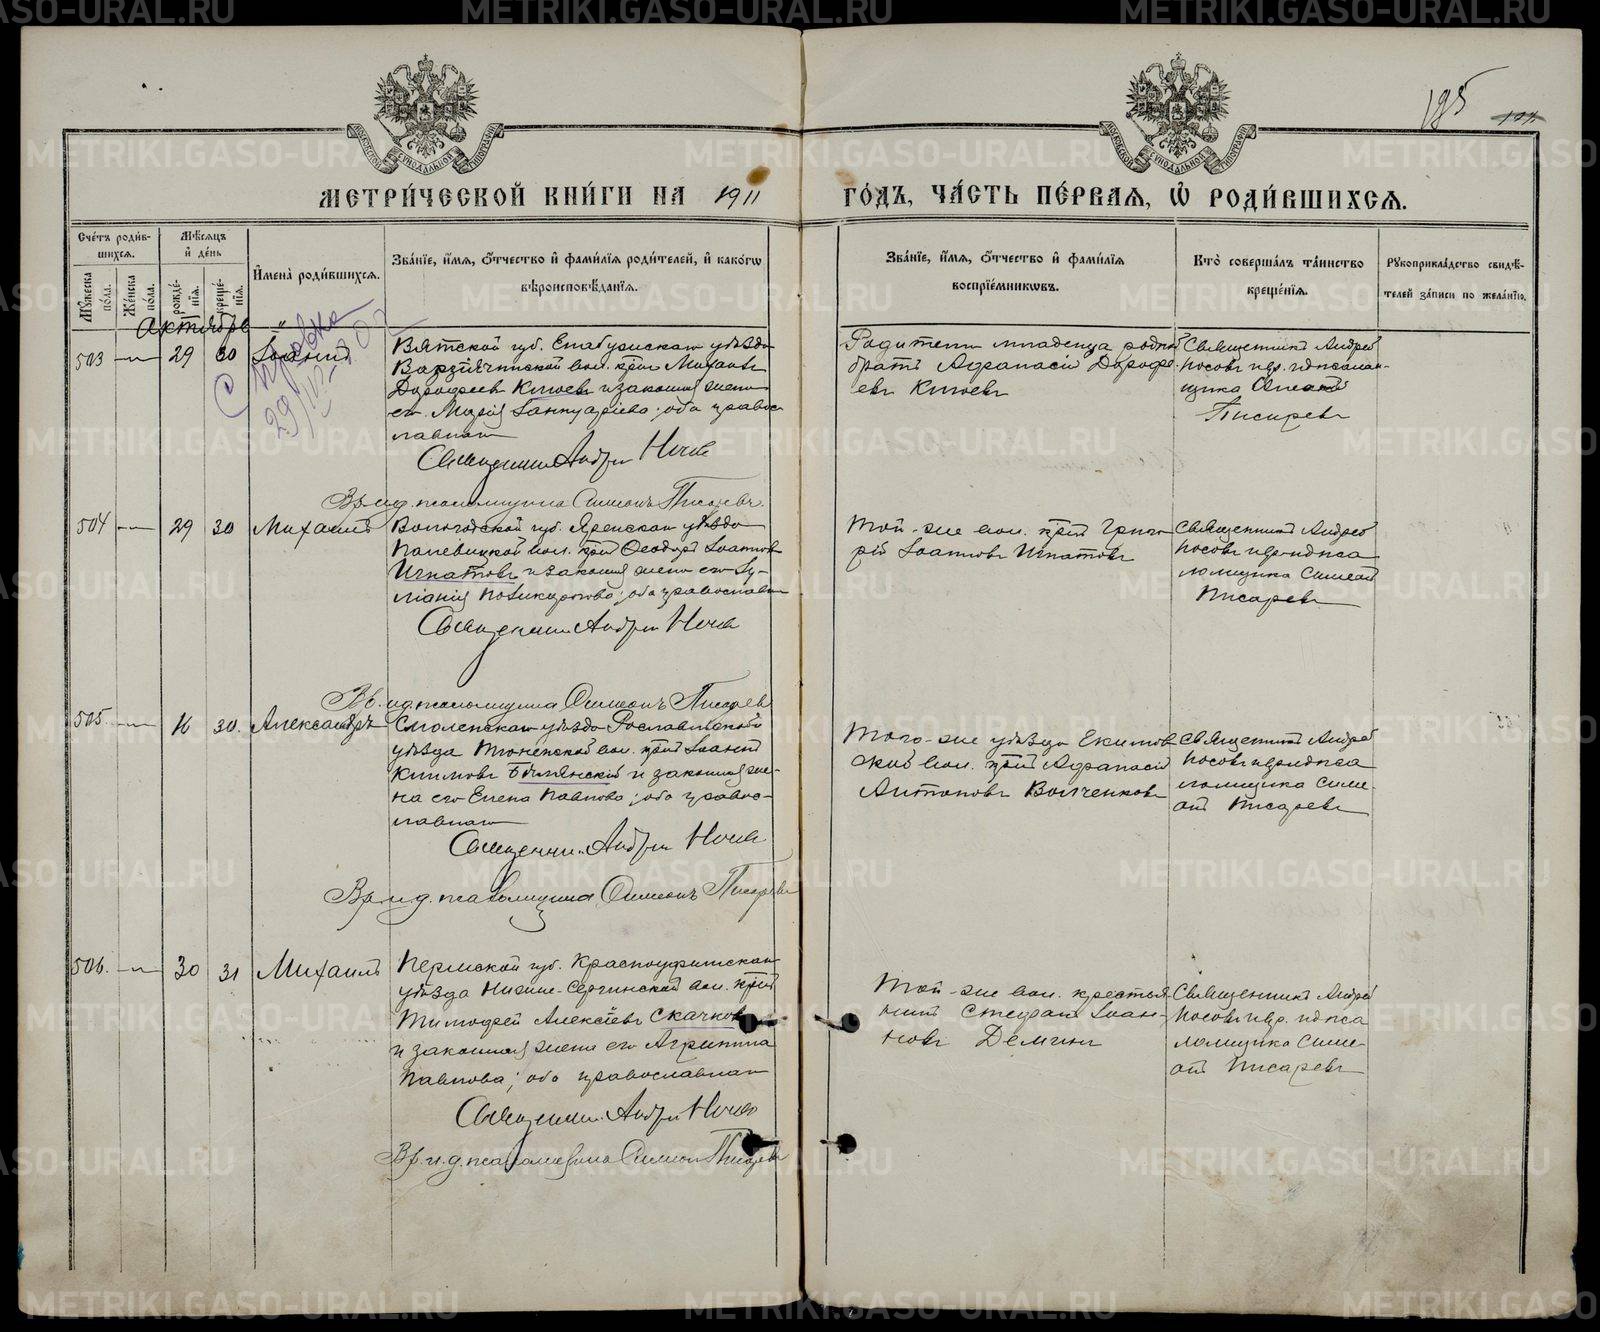 METRIKI.GASO-URAL.RU
195
МОСКОВСКОЙ СѴНОДАЛЬНОЙ ТИПОГРАФІИ
МОСКОВСКОЙ СѴНОДАЛЬНОЙ ТИПОГРАФІИ
МЕТРИ́ЧЕСКОЙ КНИ́ГИ НА 1911 ГО́ДЪ, ЧА́СТЬ ПЕ́РВАЯ, Ѡ҆ РОДИ́ВШИХСЯ.
Сче́тъ роди́в-
шихся.
Мѣ́сяцъ
и҆ де́нь
Му́жеска по́ла.
Же́нска по́ла.
рожде́нїя.
креще́нїя.
И҆мена̀ роди́вшихся.
Зва́нїе, и҆́мя, ѻ҆́тчество и҆ фами́лїя роди́телей, и҆ како́гѡ
вѣроисповѣ́данїя.
Зва́нїе, и҆́мя, ѻ҆́тчество и҆ фами́лїя
воспрїе́мниковъ.
Кто̀ соверша́лъ та́инство
креще́нїя.
Рꙋкоприкла́дство свидѣ́-
телей за́писи по жела́нїю.
Октябрь
503 29 30 Іоаннъ
Вятской губ. Елабужскаго уѣзда
вол. кр-нъ Михаилъ
Дорофеевъ и законная жена
его Марія Іаннуаріева; оба правос-
лавнаго
Священникъ Андрей Носовъ
Вр. и. д. псаломщика Симеонъ Писаревъ
Родители младенца родной
братъ Афанасій Дорофе-
евъ
Священникъ Андрей
Носовъ и вр. и д псалом-
щика Симеонъ
Писаревъ
504 29 30 Михаилъ
Вологодской губ. Яренскаго уѣзда
вол. кр-нъ Ѳеодоръ Іоанновъ
Игнатовъ и законная жена его Іу-
ліанія; оба православнаго
Священникъ Андрей Носовъ
Вр. и. д. псаломщика Симеонъ Писаревъ
Той-же вол. кр-нъ Григо-
рій Іоанновъ Игнатовъ
Священникъ Андрей
Носовъ и вр. и д пса
ломщика Симеонъ
Писаревъ
505 16 30. Александръ
Смоленской Рославльскаго
уѣзда вол. кр-нъ Іоаннъ
Климовъ и законная же-
на его Елена Павлова; оба правос-
лавнаго
Священникъ Андрей Носовъ
Вр. и. д. псаломщика Симеонъ Писаревъ
Того-же уѣзда Екимов
ской вол. кр-нъ Афанасій
Антоновъ Волченковъ
Священникъ Андрей
Носовъ и вр. и д пса
ломщика Симе-
онъ Писаревъ
506. 30 31 Михаилъ
Пермской губ. Красноуфимскаго
уѣзда Нижне-Сергинской вол. кр-нъ
Тимофей Алексѣевъ Скачковъ
и законная жена его Агриппина
Павлова; оба православнаго
Священникъ Андрей Носовъ
Вр. и. д. псаломщика Симеонъ Писаревъ
Той-же вол. крестья
нинъ Стефанъ Іоан-
новъ Деминъ
Священникъ Андрей
Носовъ и вр. и д пса
ломщика Симе-
онъ Писаревъ